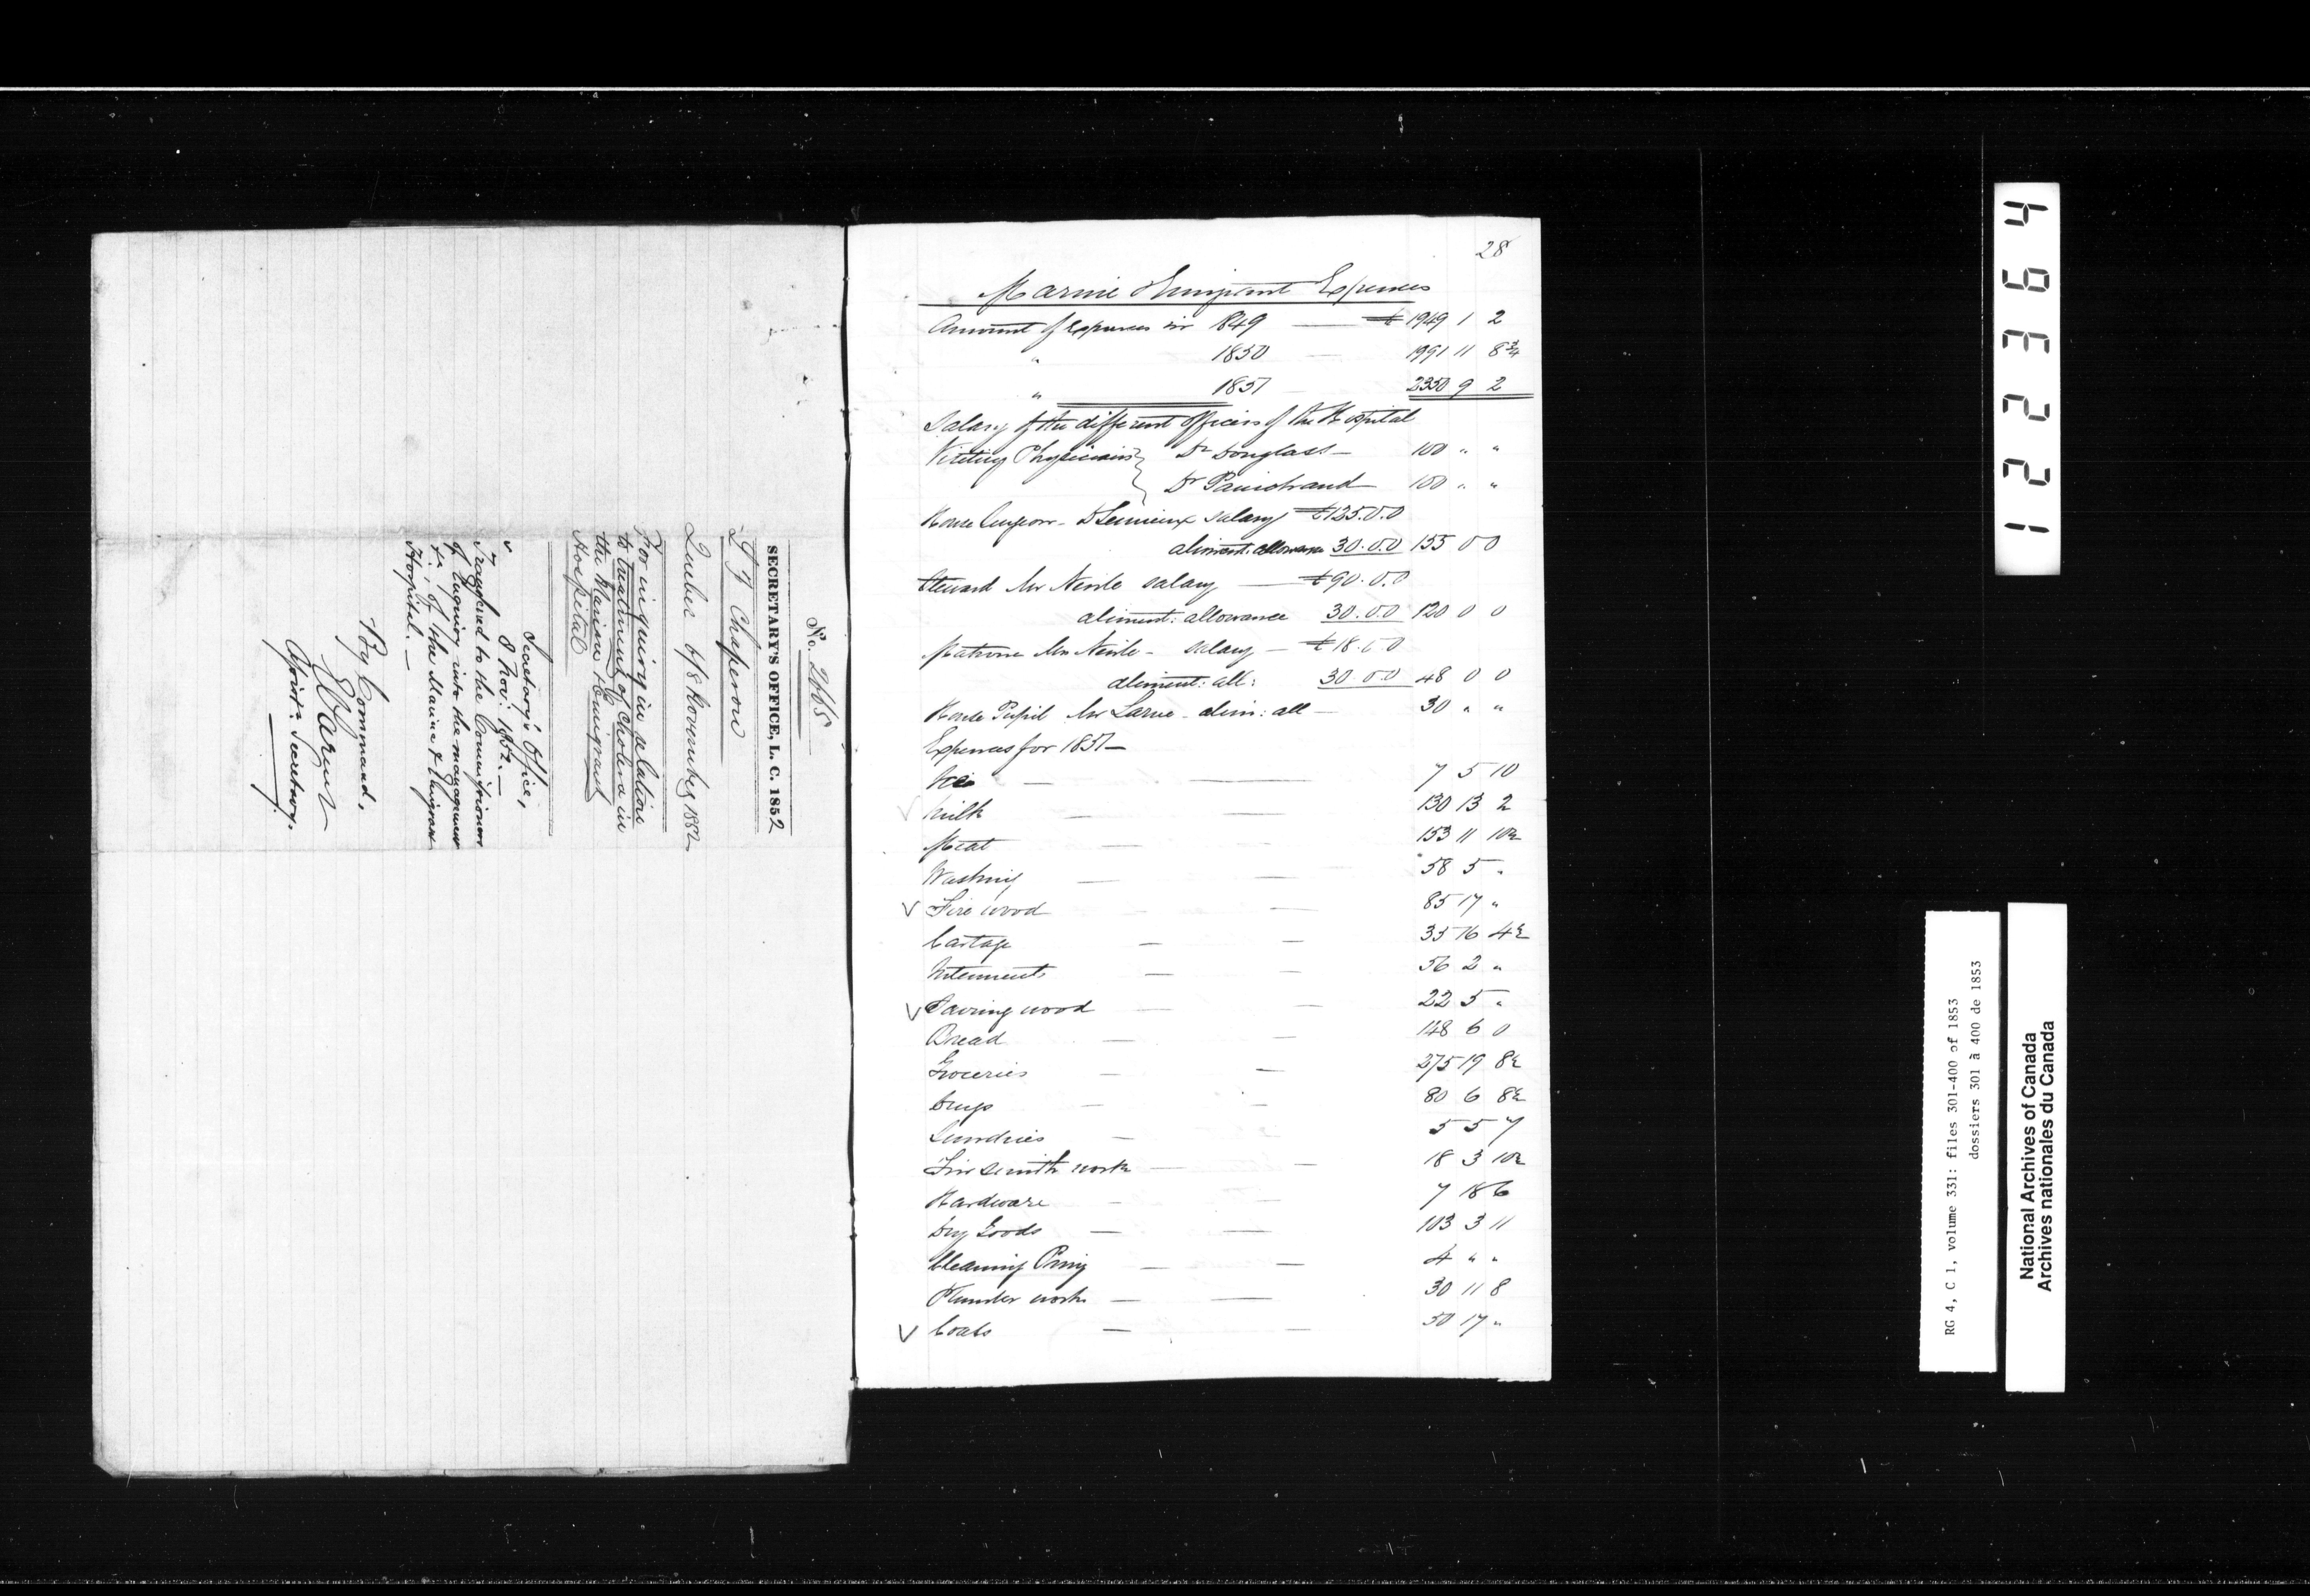 No. 2665
SECRETARY'S OFFICE, L. C. 1852
L. F. Chaperon
Quebec 6/8 November 1852
For inquiry in relation
to treatment of Cholera in
the Marine & Emigrant
Hospital
Secretary's Office,
8 Nov: 1852. —
Transferred to the Commissioners
of Enquiry into the management
&c; of the Marine & Emigrant
Hospital. —
By Command,
Assist: Secretary.
28
Marine & Emigrant Expenses
Amount of Expenses in 1849 — £ 1949 1 2
" 1850 — 1991 11 8¾
" 1851 2350 9 2
Salary of the different officers of the Hospital
Visiting Physicians } Dr Douglass — 100 " "
Dr Painchaud 100 " "
House Surgeon - Dr Lemieux salary £125.0.0
aliment: allowance 30.0.0 155 0 0
Steward Mr Neville salary — £90.0.0
aliment: allowance 30.0.0 120 0 0
Matron Mrs Neville - salary — £18.0.0
aliment: all: 30.0.0 48 0 0
House Pupil Mr Larue - alim: all — 30 " "
Expenses for 1851 —
Ice — 7 5 10
Milk — 130 13 2
Meat — 153 11 10½
Washing — 58 5 "
V Fire wood — 85 17 "
Cartage — 35 16 4½
Interments — 56 2 "
V Sawing wood — 22 5 "
Bread — 148 6 0
Groceries — 275 19 8½
Drugs — 80 6 8½
Sundries — 5 5 7
Tin smith work — 18 3 10½
Hardware — 7 18 6
Dry Goods — 103 3 11
Cleaning Privy — 4 " "
Plumber work — 30 11 8
V Coals — 50 17 "
122364
RG 4, C 1, volume 331: files 301-400 of 1853
dossiers 301 à 400 de 1853
National Archives of Canada
Archives nationales du Canada